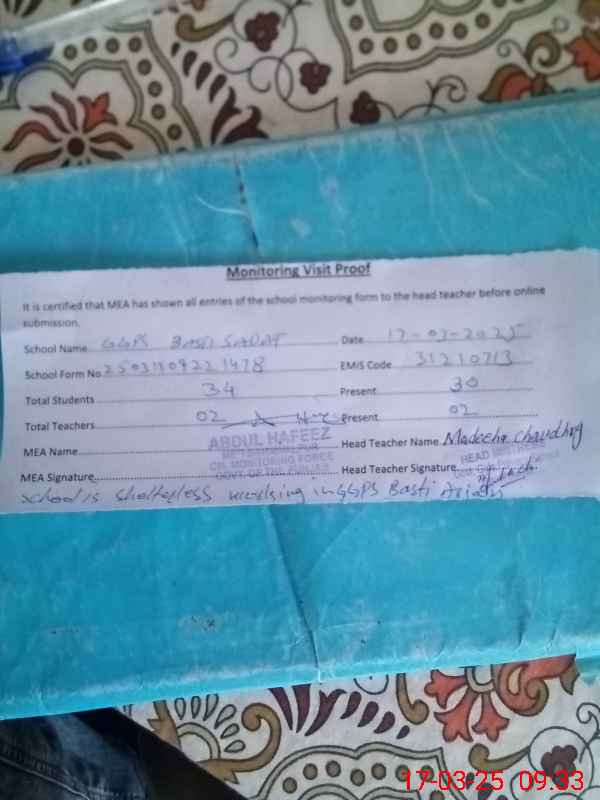 Monitoring Visit Proof
It is certified that MEA has shown all entries of the school monitoring form to the head teacher before online
submission.
School Name GGPS Basti SADAT Date 17-03-2025
School Form No EMIS Code 31210713
Total Students 34 Present 30
Total Teachers 02 Present 02
MEA Name Head Teacher Name Madeeha Chaudhry
ABDUL HAFEEZ
CM. MONITORING FORCE
GOVT. OF THE PUNJAB
HEAD MISTRESS
MEA Signature Head Teacher Signature
School is shelterless working in GGPS Basti
17-03-25 09.33